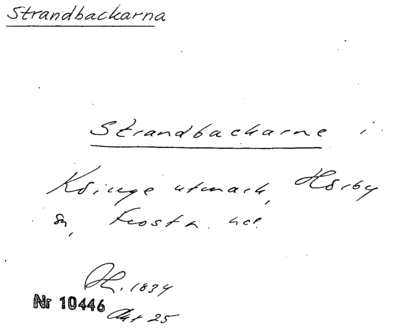 Strandbackarna
Strandbackarne i
Köinge utmark, Hörby
sn, Frosta hd.
Nr 10446